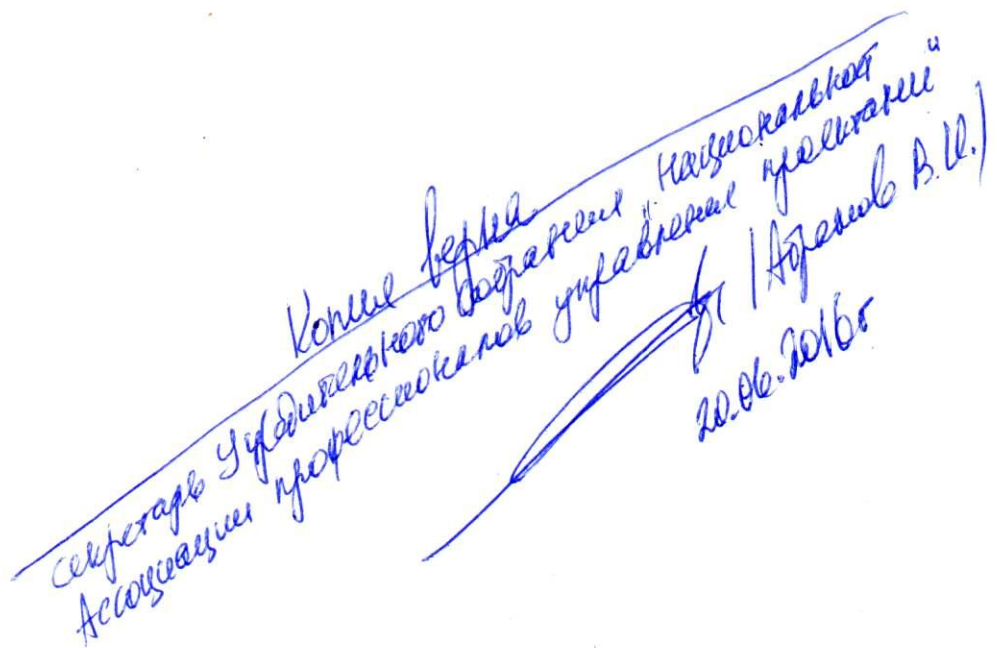 Копия верна
секретарь Учредительного собрания "Национальной
Ассоциации профессионалов управления проектами"
/Абрамов В.И./
20.06.2016г